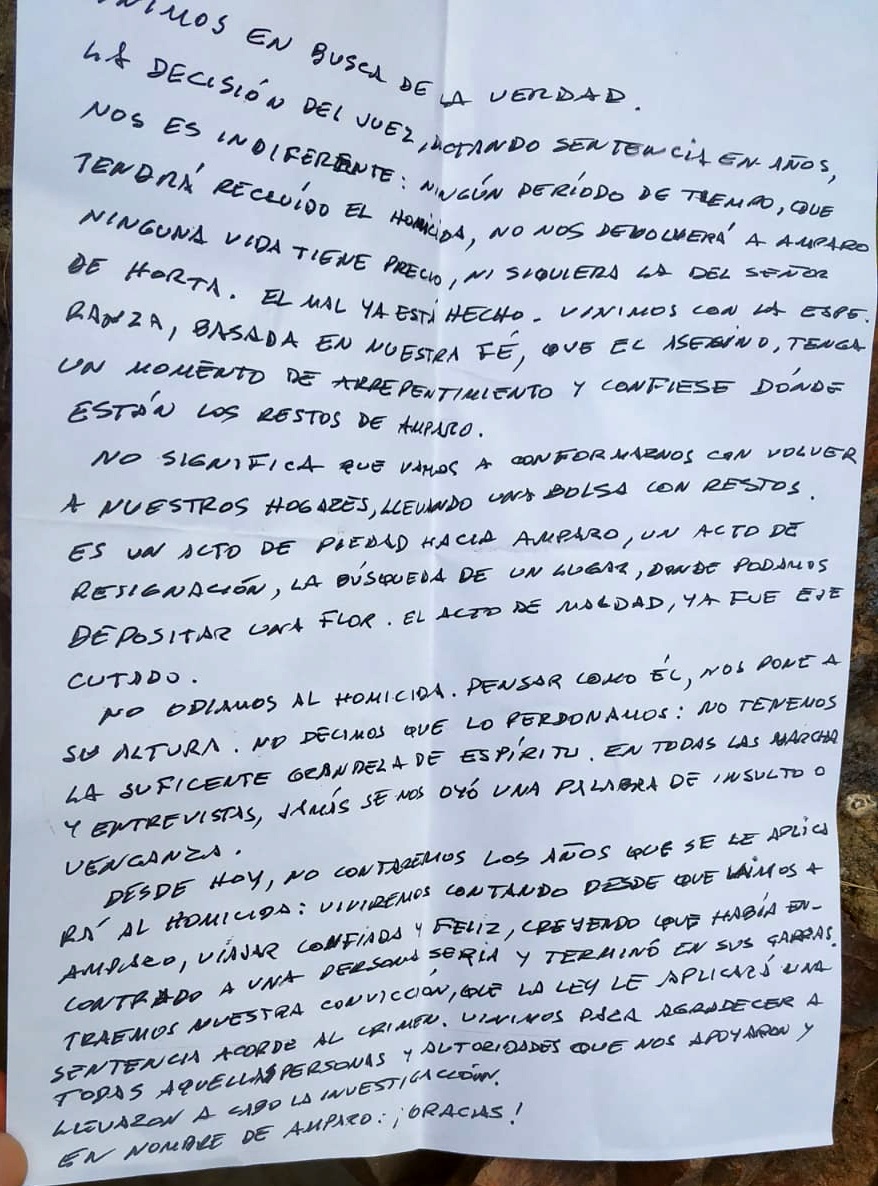 VINIMOS EN BUSCA DE LA VERDAD.
LA DECISIÓN DEL JUEZ, DICTANDO SENTENCIA EN AÑOS,
NOS ES INDIFERENTE: NINGÚN PERÍODO DE TIEMPO, QUE
TENDRÁ RECLUÍDO EL HOMICIDA, NO NOS DEVOLVERÁ A AMPARO
NINGUNA VIDA TIENE PRECIO, NI SIQUIERA LA DEL SEÑOR
DE HORTA. EL MAL YA ESTÁ HECHO. VINIMOS CON LA ESPE.
RANZA, BASADA EN NUESTRA FÉ, QUE EL ASESINO, TENGA
UN MOMENTO DE ARREPENTIMIENTO Y CONFIESE DÓNDE
ESTÁN LOS RESTOS DE AMPARO.
NO SIGNIFICA QUE VAMOS A CONFORMARNOS CON VOLVER
A NUESTROS HOGARES, LLEVANDO UNA BOLSA CON RESTOS.
ES UN ACTO DE PIEDAD HACIA AMPARO, UN ACTO DE
RESIGNACIÓN, LA BÚSQUEDA DE UN LUGAR, DONDE PODAMOS
DEPOSITAR UNA FLOR. EL ACTO DE MALDAD, YA FUE EJE
CUTADO.
NO ODIAMOS AL HOMICIDA. PENSAR COMO ÉL, NOS PONE A
SU ALTURA. NO DECIMOS QUE LO PERDONAMOS: NO TENEMOS
LA SUFICENTE GRANDEZA DE ESPÍRITU. EN TODAS LAS MARCHA
Y ENTREVISTAS, JAMÁS SE NOS OYÓ UNA PALABRA DE INSULTO O
VENGANZA.
DESDE HOY, NO CONTAREMOS LOS AÑOS QUE SE LE APLICA
RÁ AL HOMICIDA: VIVIREMOS CONTANDO DESDE QUE VIMOS A
AMPARO, VIAJAR CONFIADA Y FELIZ, CREYENDO QUE HABÍA EN-
CONTRADO A UNA PERSONA SERIA Y TERMINÓ EN SUS GARRAS.
TRAEMOS NUESTRA CONVICCIÓN, QUE LA LEY LE APLICARÁ UNA
SENTENCIA ACORDE AL CRIMEN. VINIMOS PARA AGRADECER A
TODAS AQUELLAS PERSONAS Y AUTORIDADES QUE NOS APOYARON Y
LLEVARON A CABO LA INVESTIGACCIÓN.
EN NOMBRE DE AMPARO: ¡GRACIAS!